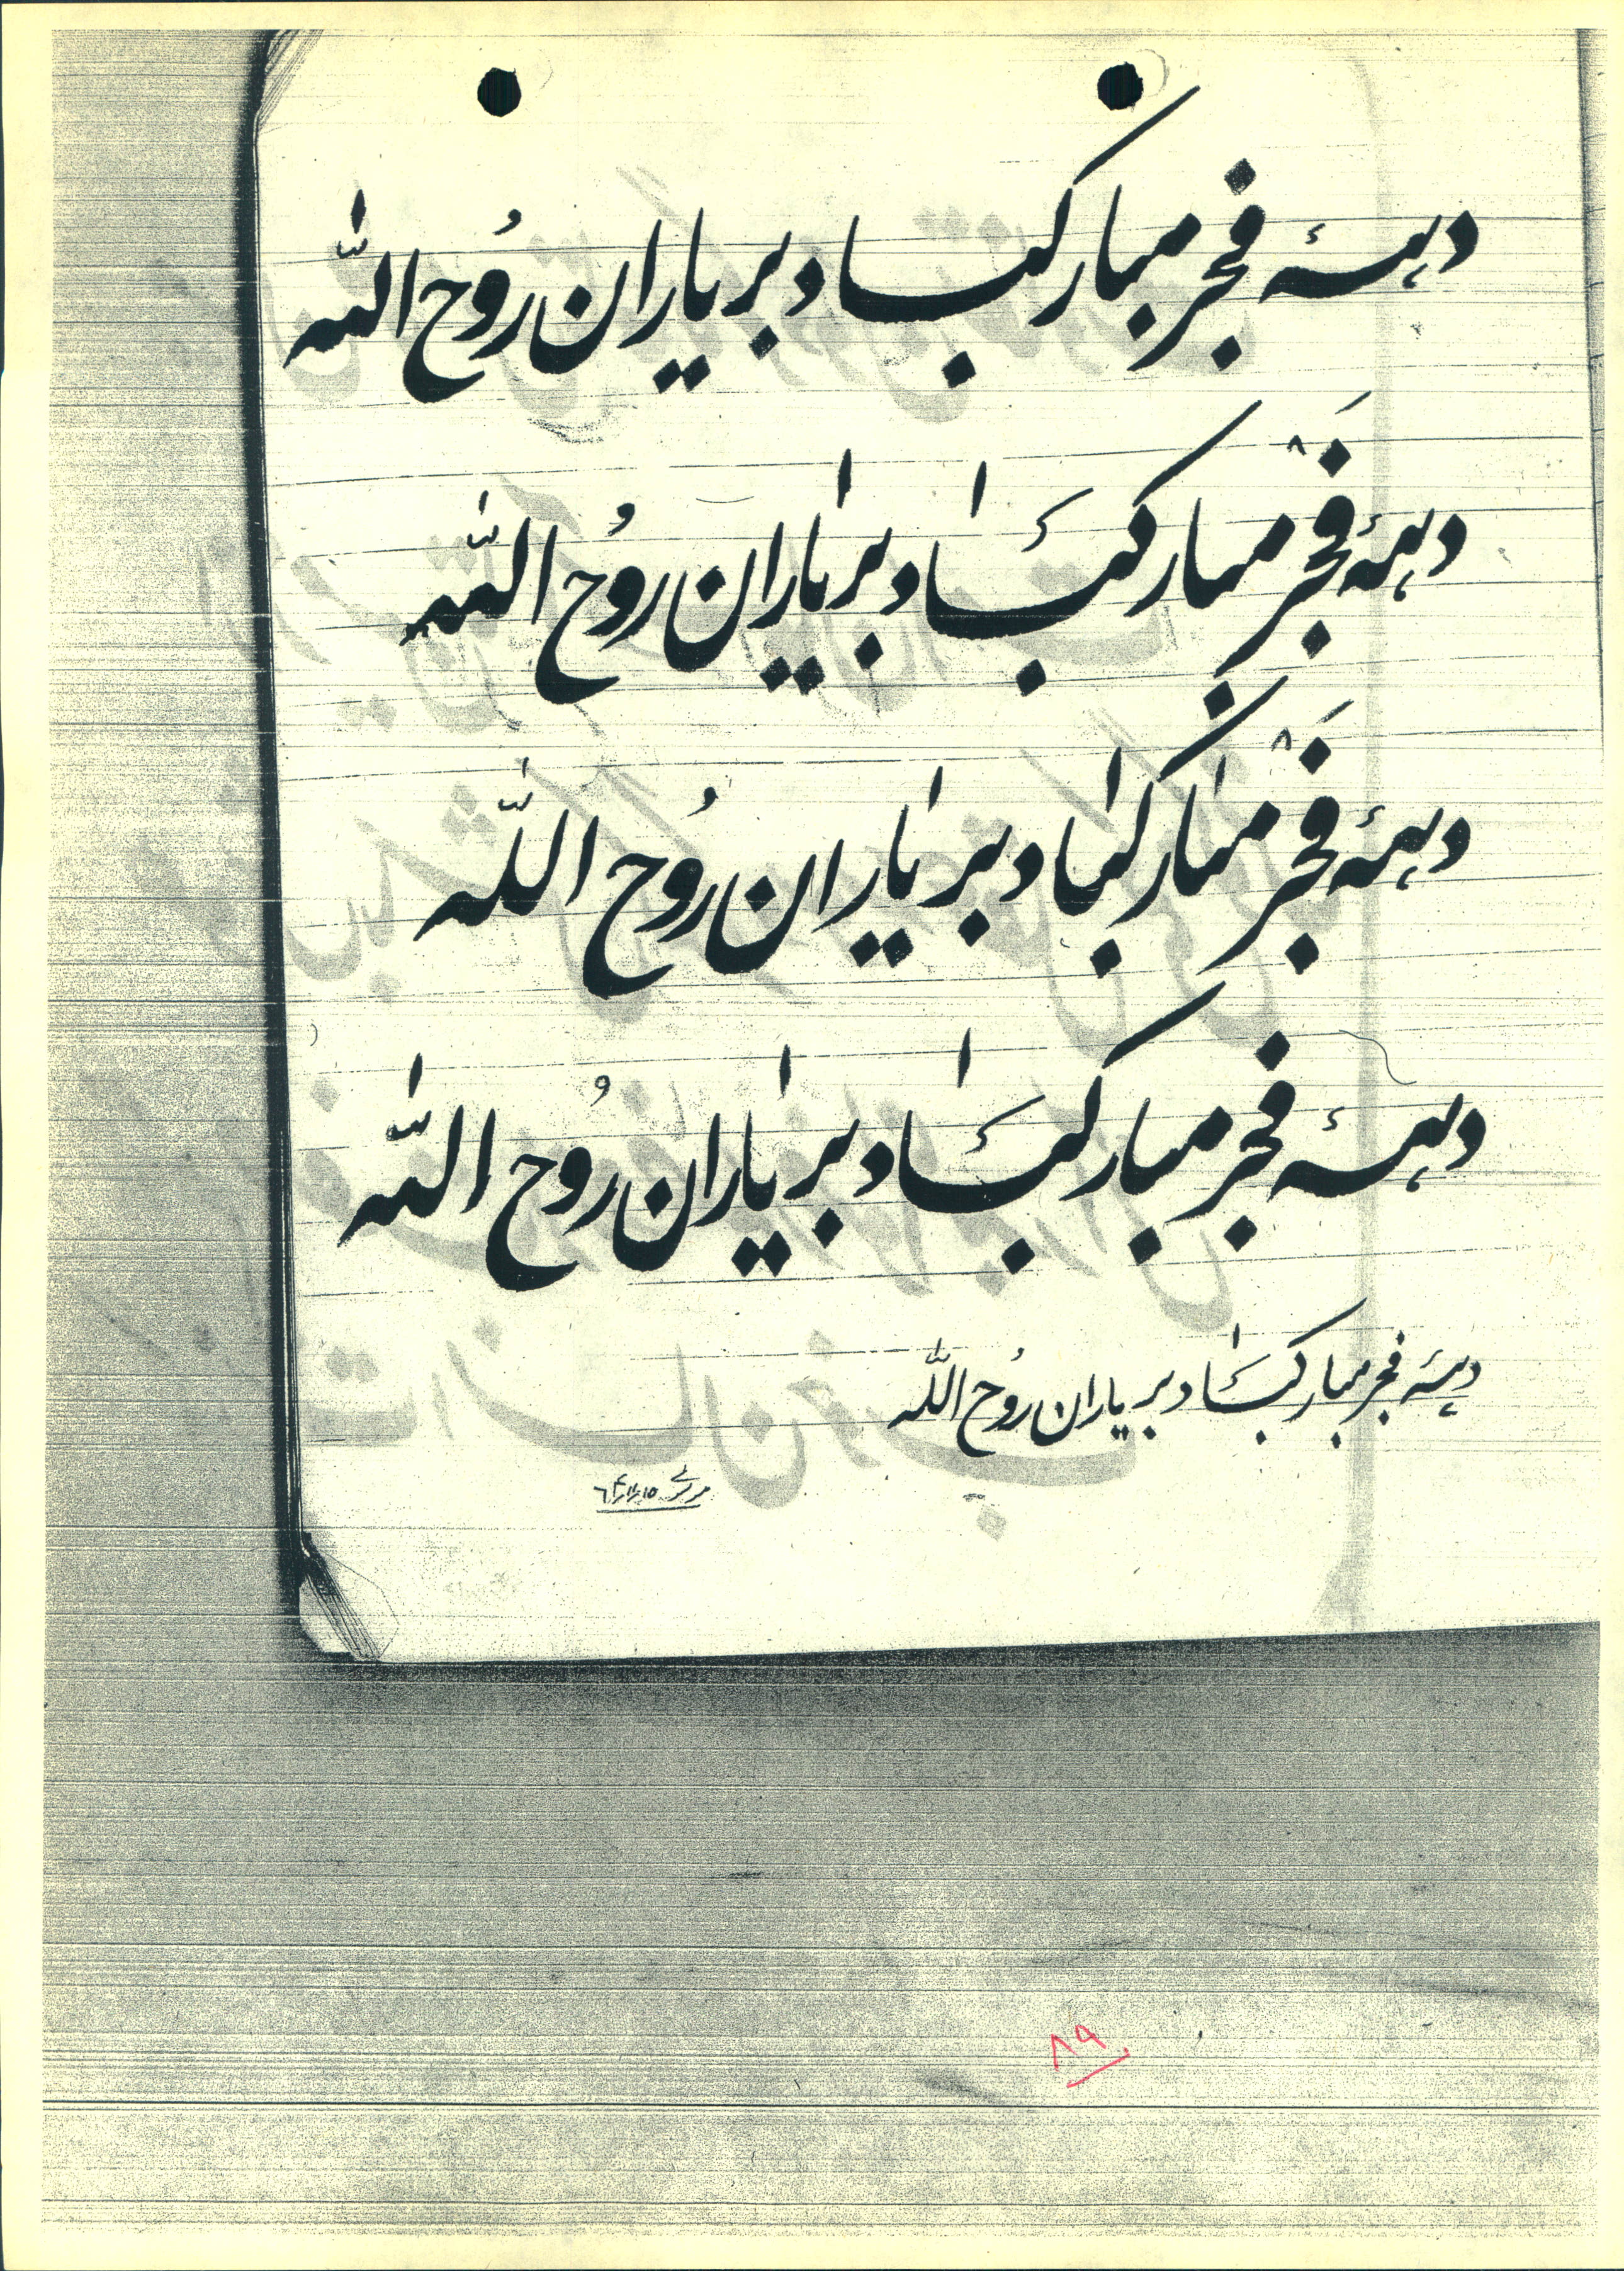 دههٔ فجر مبارکباد بر یاران رُوح الله
دههٔ فَجْر مبارکبَاد بر یاران رُوح الله
دههٔ فَجْر مبارکباد بر یاران رُوح الله
دههٔ فجر مبارکبَاد بر یاران رُوح الله
دههٔ فجر مبارکبَاد بر یاران رُوح الله
۱۵/۱۱/۶۴
۸۹